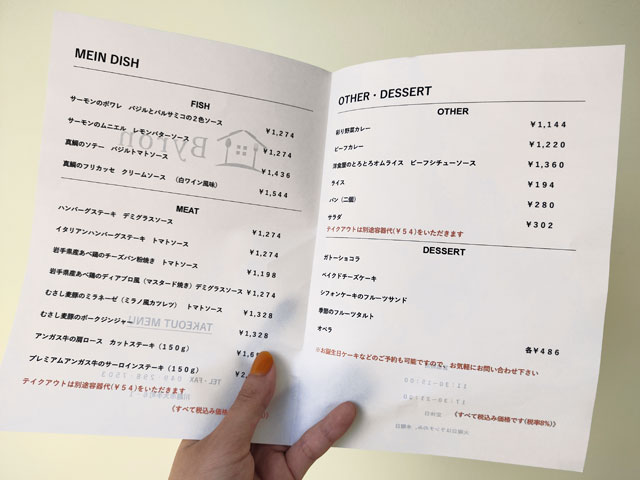 MEIN DISH
FISH
サーモンのポワレ バジルとバルサミコの2色ソース ¥1,274
サーモンのムニエル レモンバターソース ¥1,274
真鯛のソテー バジルトマトソース ¥1,436
真鯛のフリカッセ クリームソース (白ワイン風味) ¥1,544
MEAT
ハンバーグステーキ デミグラスソース ¥1,274
イタリアンハンバーグステーキ トマトソース ¥1,274
岩手県産あべ鶏のチーズパン粉焼き トマトソース ¥1,198
岩手県産あべ鶏のディアブロ風(マスタード焼き)デミグラスソース ¥1,274
むさし麦豚のミラネーゼ(ミラノ風カツレツ) トマトソース ¥1,328
むさし麦豚のポークジンジャー ¥1,328
アンガス牛の肩ロース カットステーキ(150g)
プレミアムアンガス牛のサーロインステーキ(150g)
テイクアウトは別途容器代(¥54)をいただきます
《すべて税込み価格
Byron
TAKEOUT MENU
OTHER・DESSERT
OTHER
彩り野菜カレー ¥1,144
ビーフカレー ¥1,220
洋食屋のとろとろオムライス ビーフシチューソース ¥1,360
ライス ¥194
パン(二個) ¥280
サラダ ¥302
テイクアウトは別途容器代(¥54)をいただきます
DESSERT
ガトーショコラ
ベイクドチーズケーキ
シフォンケーキのフルーツサンド
季節のフルーツタルト
オペラ
各¥486
※お誕生日ケーキなどのご予約も可能ですので、お気軽にお問い合わせ下さい
《すべて税込み価格です(税率8%)》